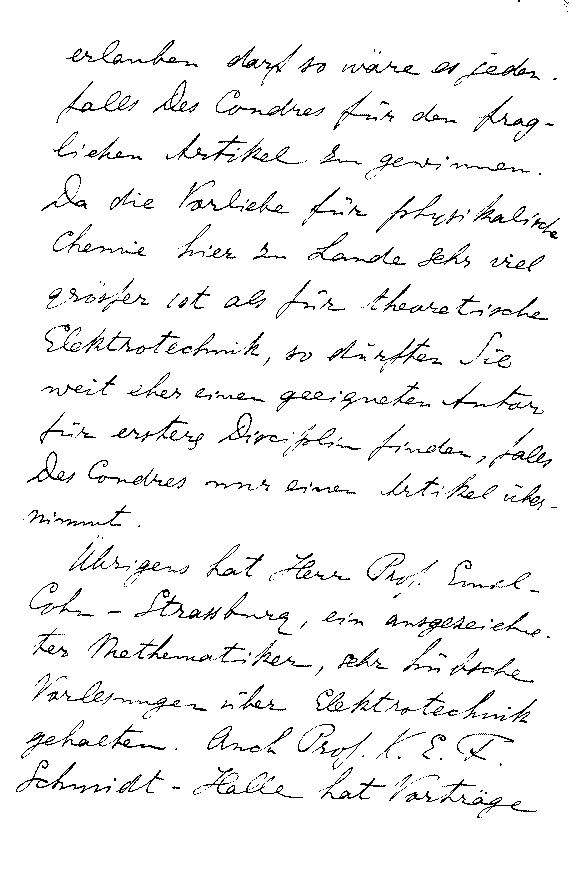 erlauben darf so wäre es jeden-
falls Des Coudres für den frag-
lichen Artikel zu gewinnen.
Da die Vorliebe für physikalische
Chemie hier zu Lande sehr viel
grösser ist als für theoretische
Elektrotechnik, so dürften Sie
weit eher einen geeigneten Autor
für erstere Disciplin finden, falls
Des Coudres nur einen Artikel über-
nimmt.
Übrigens hat Herr Prof. Emil-
Cohn - Strassburg, ein ausgezeichne-
ter Mathematiker, sehr hübsche
Vorlesungen über Elektrotechnik
gehalten. Auch Prof. K. E. F.
Schmidt - Halle hat Vorträge